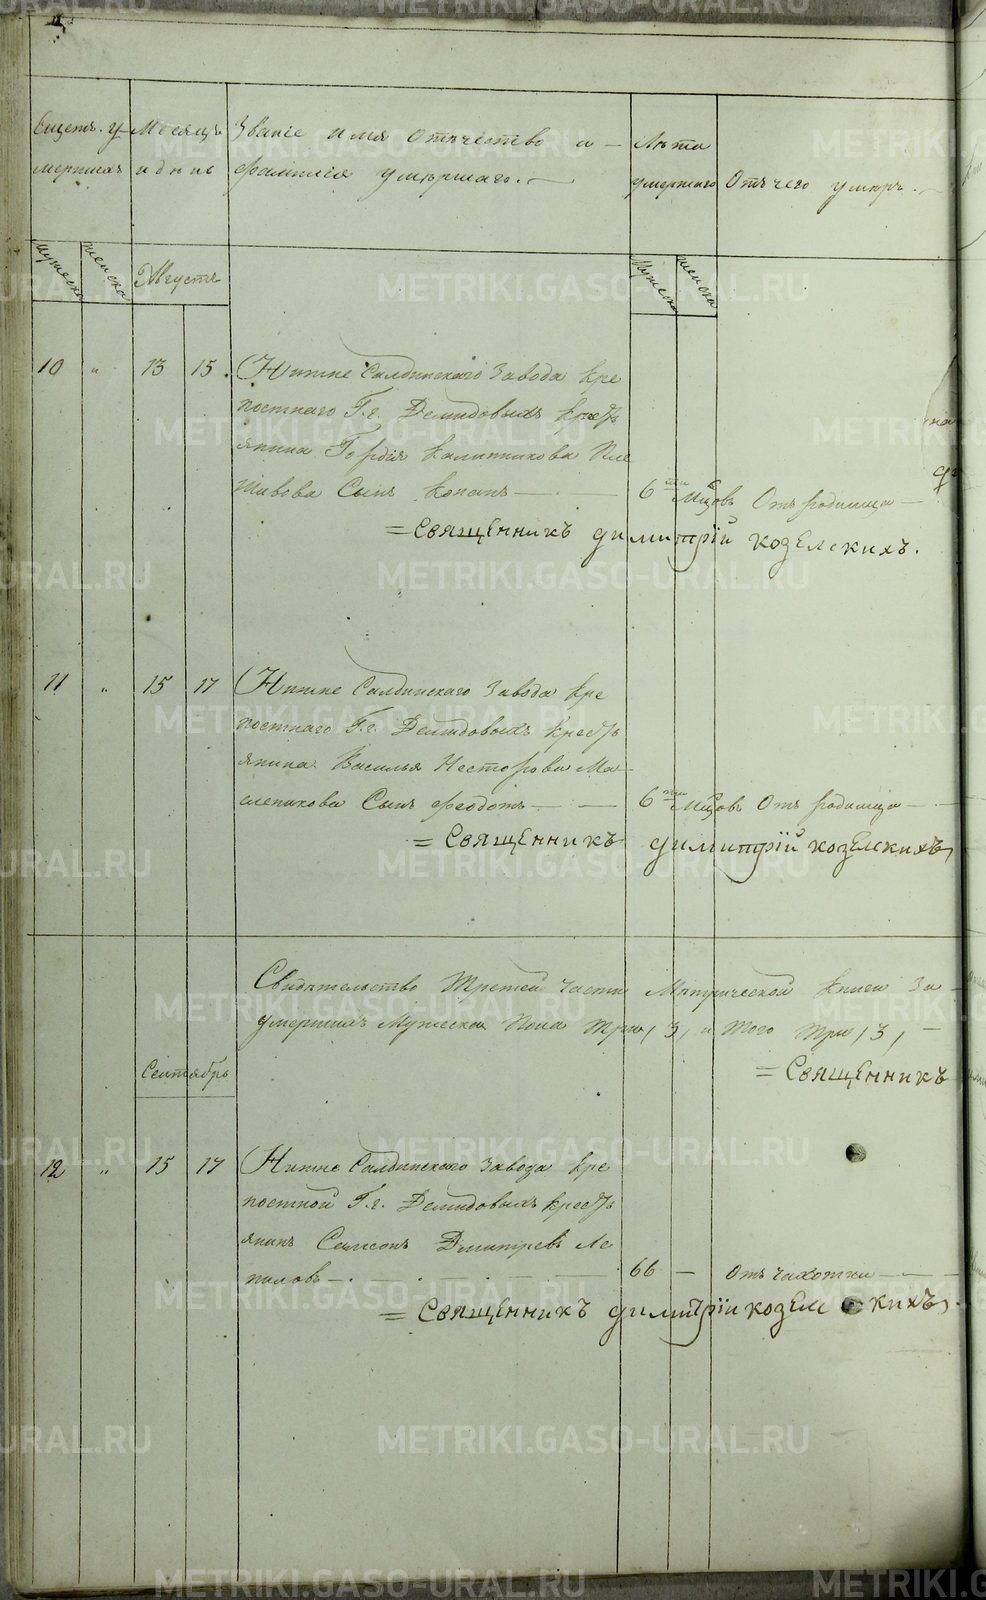 Счетъ у-
мершихъ
Месяцъ
и дние
Званiе имя отъчество и
фамилiя умършаго.
Лѣта
умершаго
Отъ чего умеръ.
мужеска
женска
Августъ
мужеска
женска
10 " 13 15. Нижне Салдинскаго Завода Кре
постнаго Г.г. Демидовыхъ крестъ
янина Гордiя Калинникова
Сынъ
6ти Мцовъ Отъ родимца
= Священникъ димитрiй козелскихъ.
11 " 15 17 Нижне Салдинскаго Завода Кре
постнаго Г.г. Демидовыхъ крестъ
янина Василья Нестерова Ма
сленикова Сынъ феодотъ
6ти Мцовъ Отъ родимца
= Священникъ димитрiй козелскихъ
Свидательство Третей Части Метрической книги За
умершихъ Мужеска Пола Три, 3, и Того Три, 3,
= Священникъ
Сентябрь
12 " 15 17 Нижне Салдинскаго Завода Кре
постной Г.г. Демидовыхъ крестъ
янинъ Самсонъ Дмитревъ Ле
пиловъ
66 — отъ чахотки
= Священникъ димитрiй козелскихъ.
METRIKI.GASO-URAL.RU